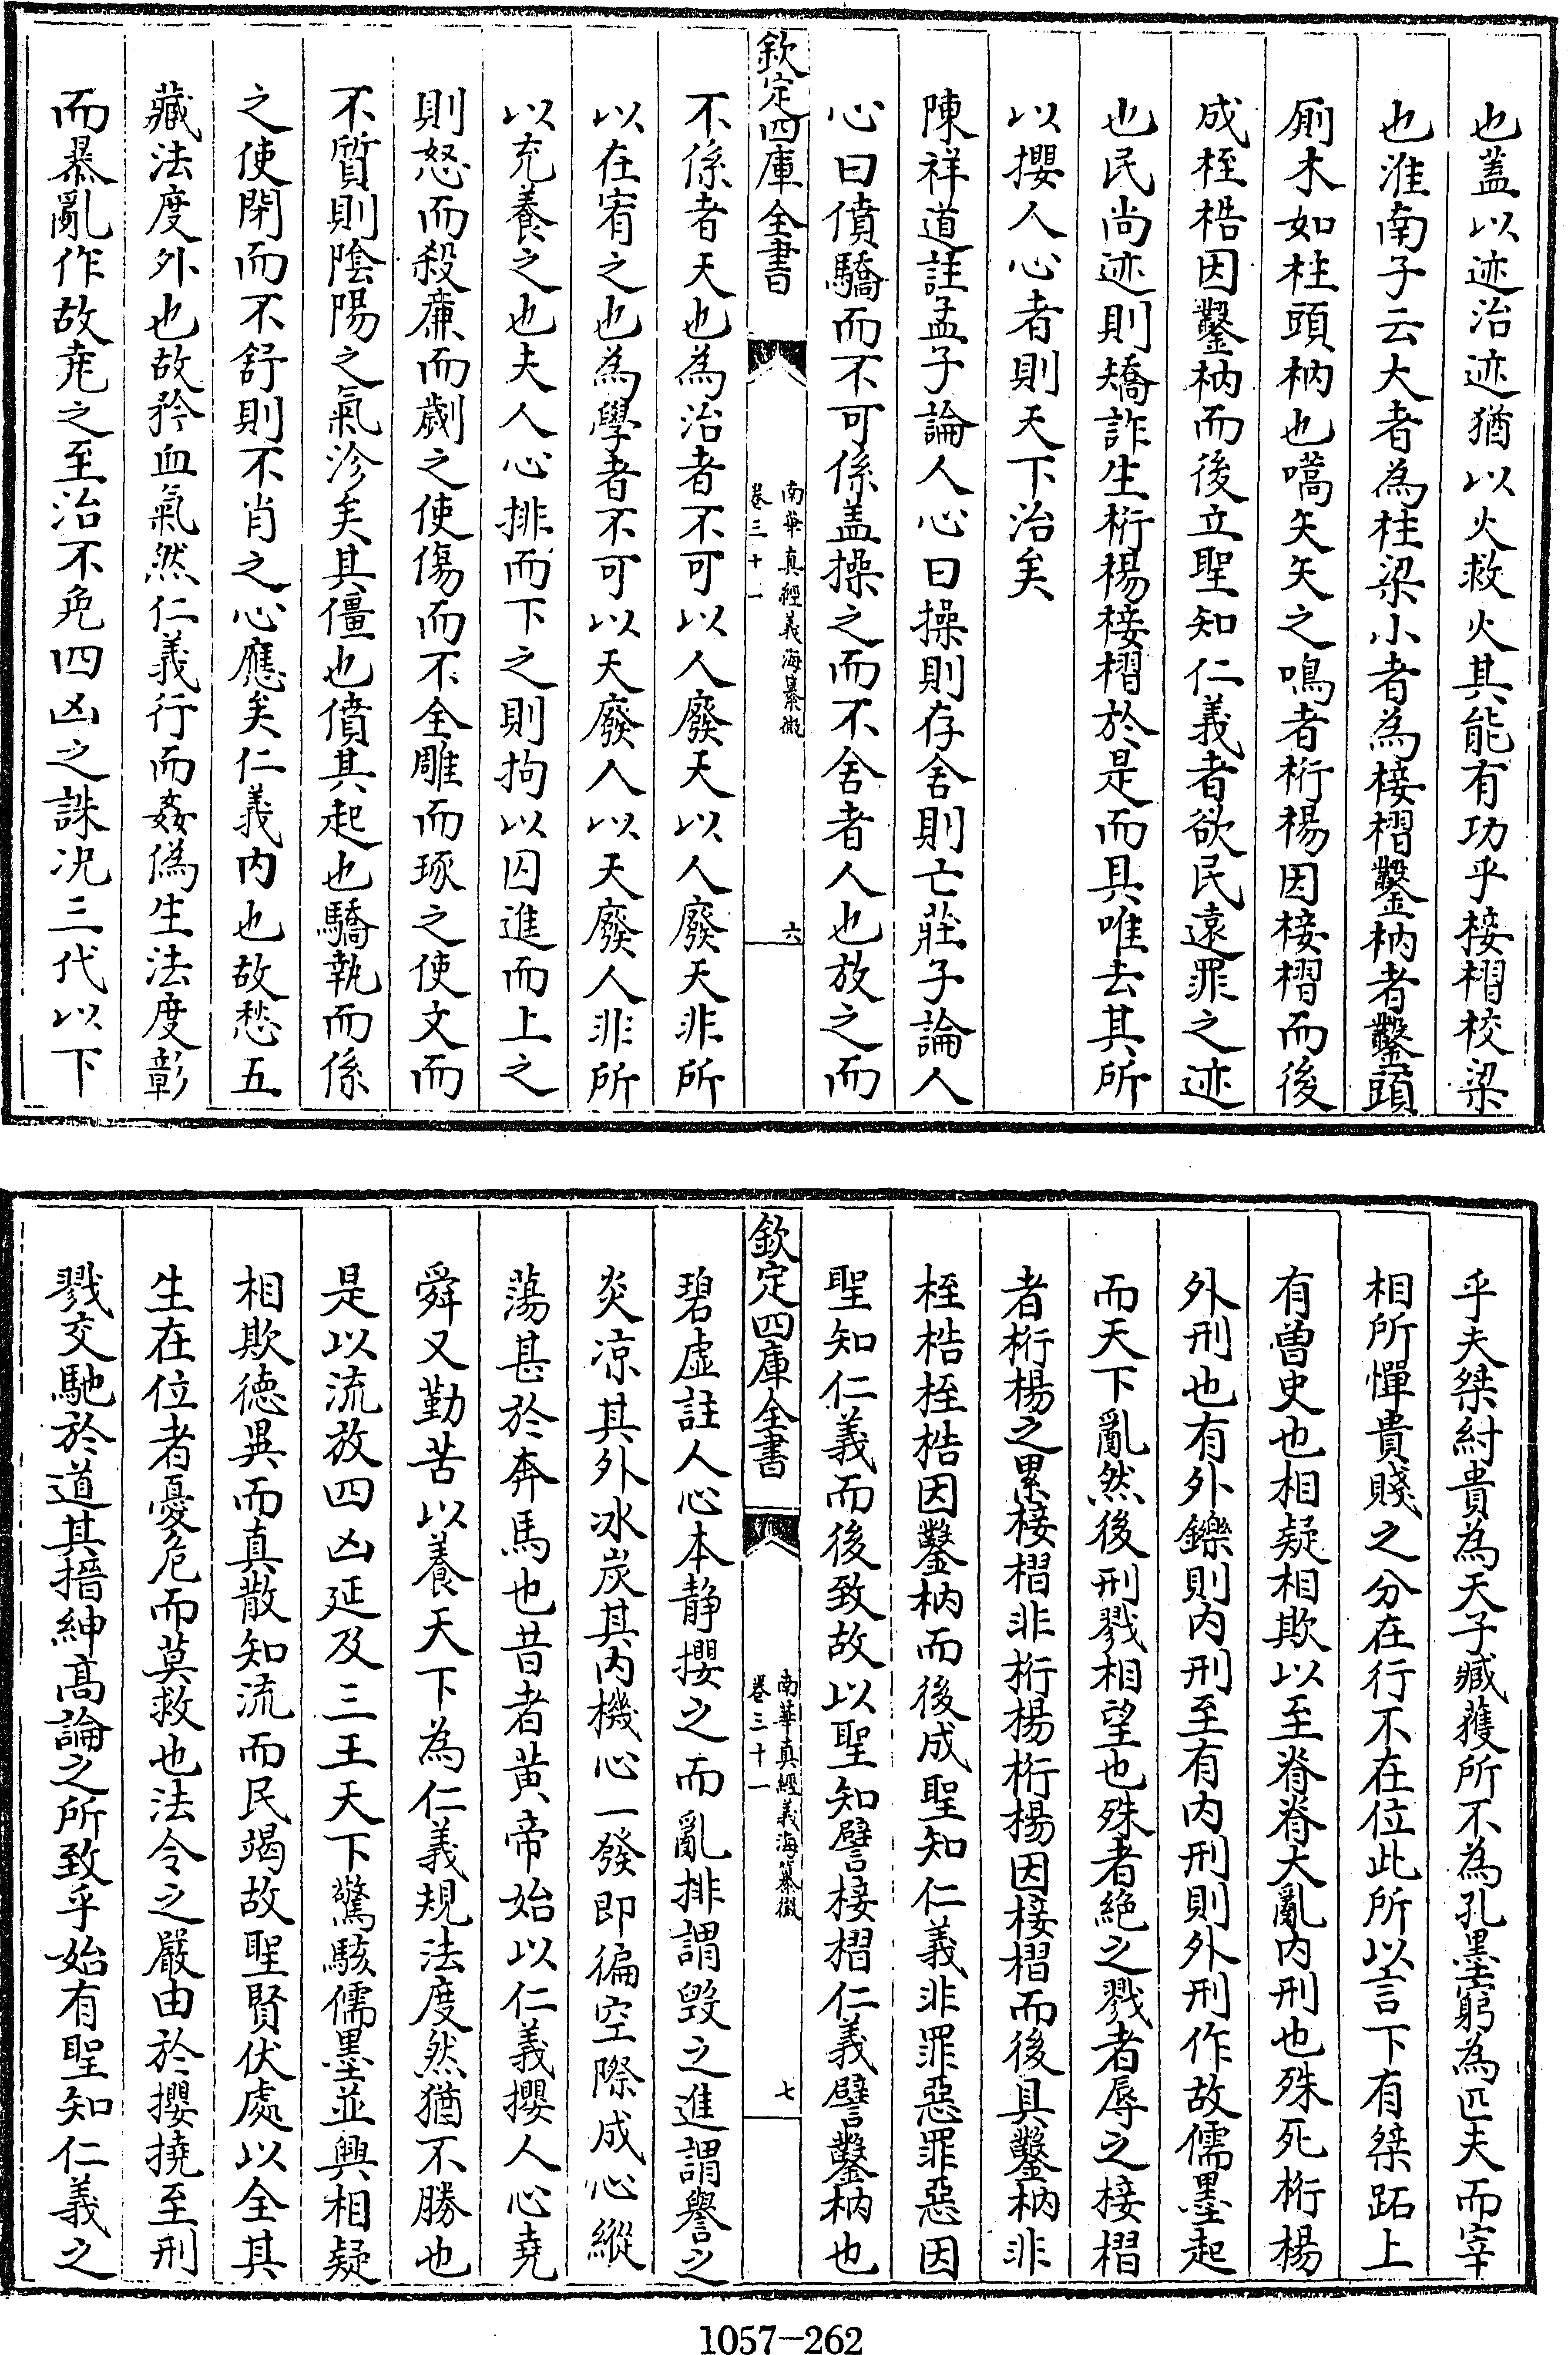 也蓋以迹治迹猶以火救火其能有功乎椄槢校梁
也淮南子云大者為柱梁小者為椄槢鑿枘者鑿頭
厠木如柱頭枘也嚆矢矢之鳴者桁楊因椄槢而後
成桎梏因鑿枘而後立聖知仁義者欲民逺罪之迹
也民尚迹則矯詐生桁楊椄槢於是而具唯去其所
以攖人心者則天下治矣
陳祥道註孟子論人心曰操則存舍則亡莊子論人
心曰僨驕而不可係盖操之而不舍者人也放之而
欽定四庫全書
南華真經義海纂微
卷三十一
六
不係者天也為治者不可以人廢天以人廢天非所
以在宥之也為學者不可以天廢人以天廢人非所
以充養之也夫人心排而下之則拘以囚進而上之
則怒而殺亷而劌之使傷而不全雕而琢之使文而
不質則隂陽之氣沴矣其僵也僨其起也驕執而係
之使閉而不舒則不肖之心應矣仁義内也故愁五
藏法度外也故矜血氣然仁義行而姦偽生法度彰
而暴亂作故堯之至治不免四凶之誅况三代以下
乎夫桀紂貴為天子臧獲所不為孔墨窮為匹夫而宰
相所憚貴賤之分在行不在位此所以言下有桀跖上
有曽史也相疑相欺以至脊脊大亂内刑也殊死桁楊
外刑也有外鑠則内刑至有内刑則外刑作故儒墨起
而天下亂然後刑戮相望也殊者絶之戮者辱之椄槢
者桁楊之累椄槢非桁楊桁楊因椄槢而後具鑿枘非
桎梏桎梏因鑿枘而後成聖知仁義非罪惡罪惡因
聖知仁義而後致故以聖知譬椄槢仁義譬鑿枘也
欽定四庫全書
南華真經義海纂微
卷三十一
七
碧虚註人心本静攖之而亂排謂毁之進謂譽之
炎凉其外冰炭其内機心一發即徧空際成心縱
蕩甚於奔馬也昔者黄帝始以仁義攖人心堯
舜又勤苦以養天下為仁義規法度然猶不勝也
是以流放四凶延及三王天下驚駭儒墨並興相疑
相欺徳異而真散知流而民竭故聖賢伏處以全其
生在位者憂危而莫救也法令之嚴由於攖撓至刑
戮交馳於道其搢紳髙論之所致乎始有聖知仁義之
1057-262